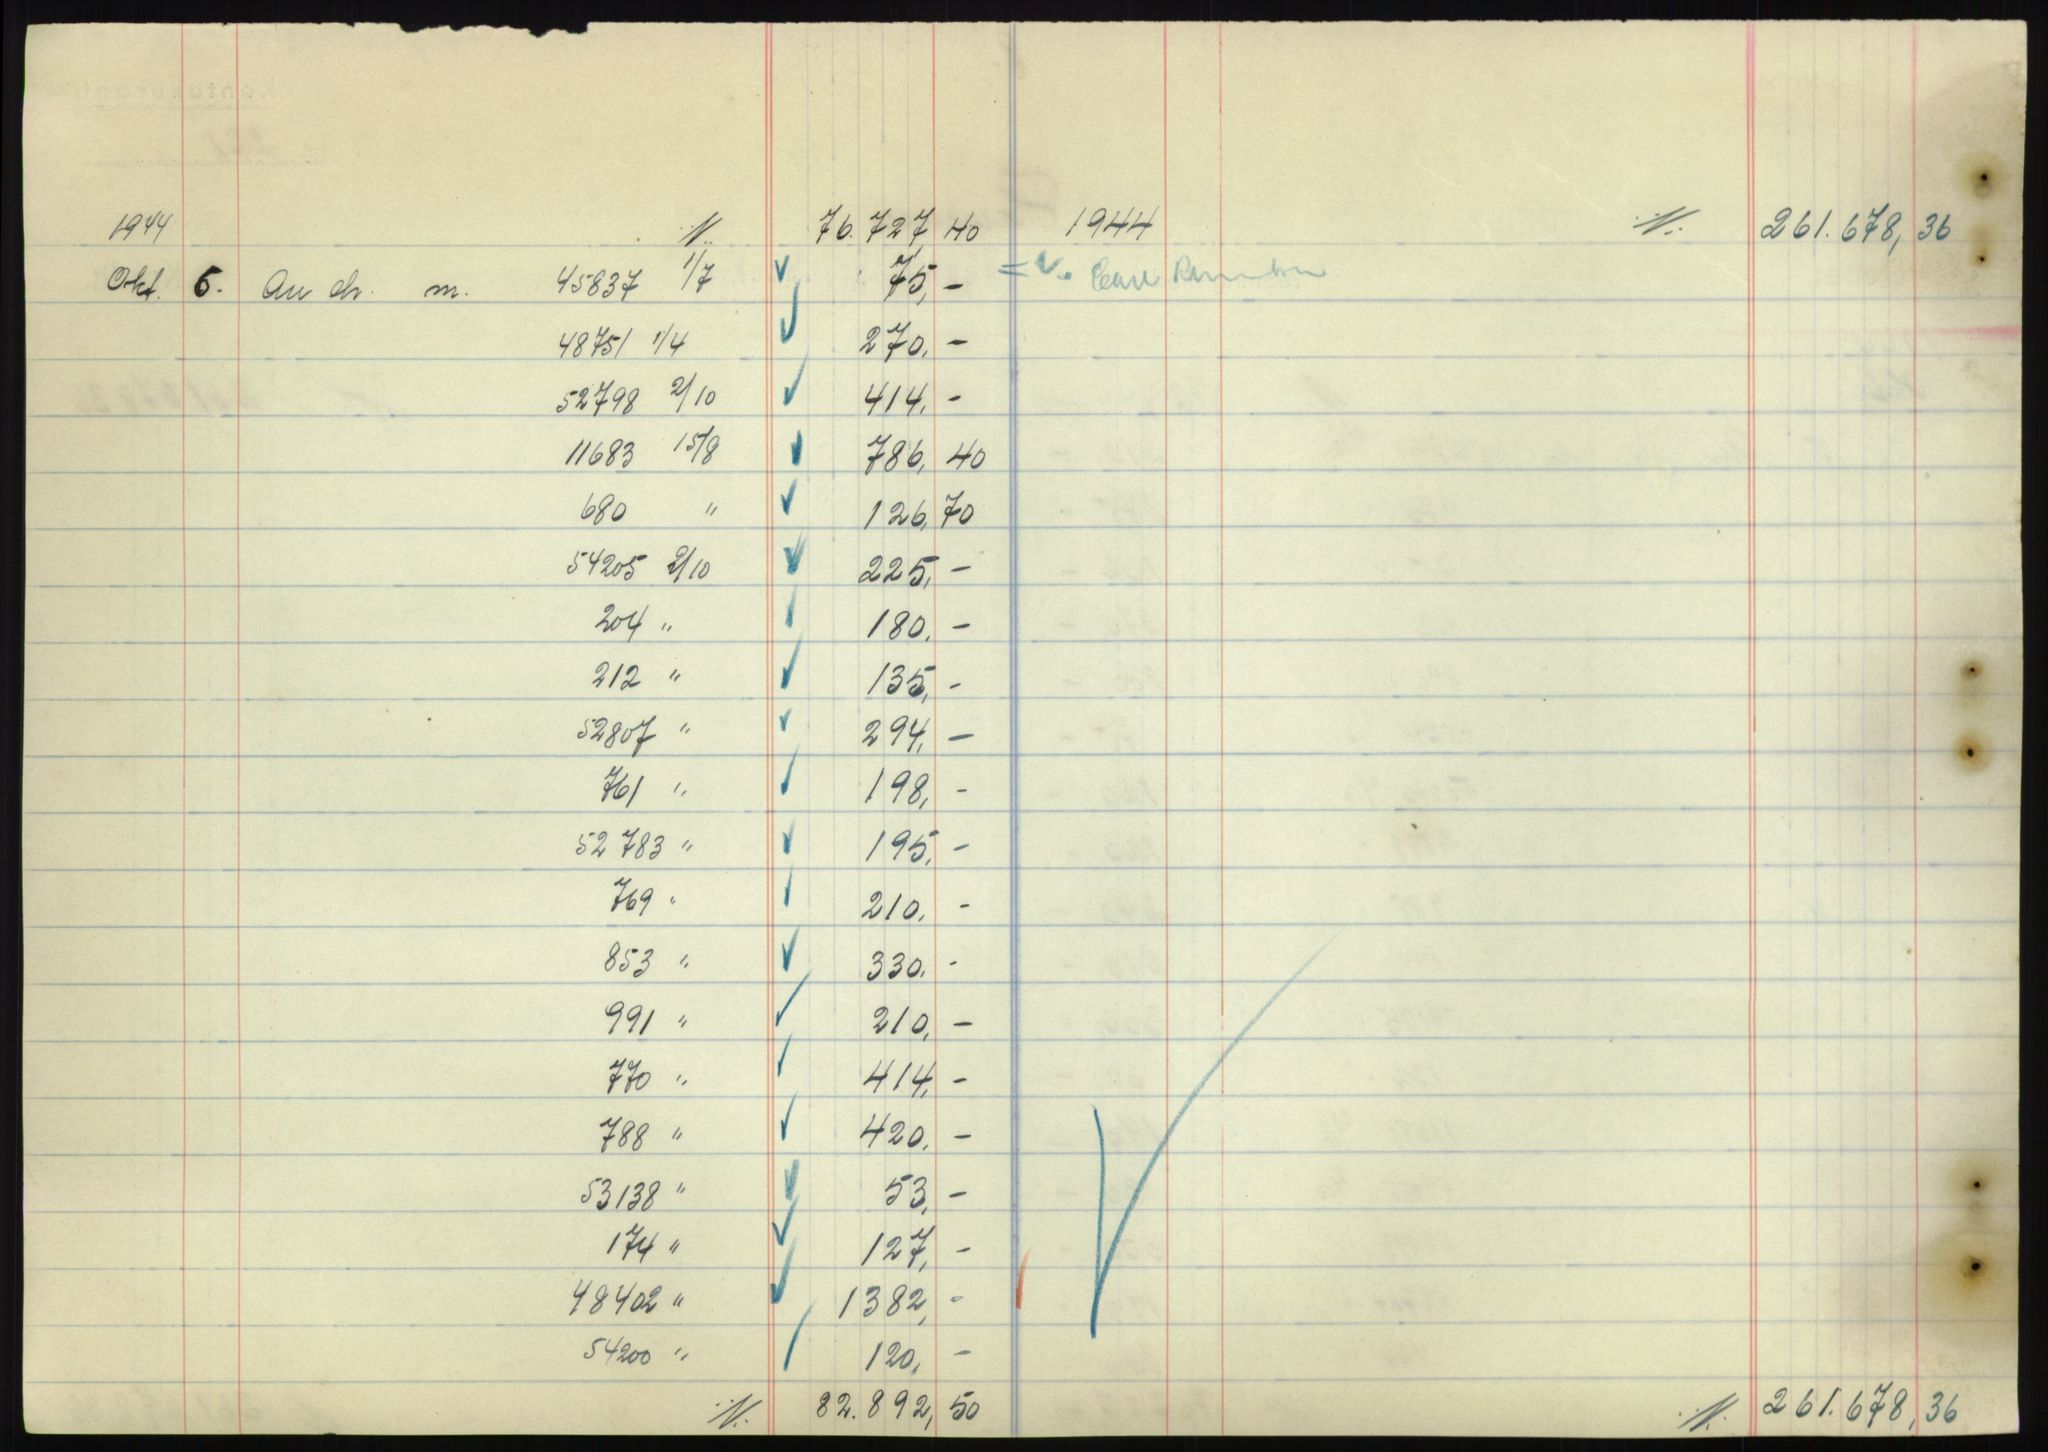 1944 ·/· 76.727,40 1944 ·/· 261.678,36
Okt. 5. An dr. m. 45837 1/7 75,-
48751 1/4 270,-
52798 2/10 414,-
11683 15/8 786,40
680 " 126,70
54205 2/10 225,-
204 " 180,-
212 " 135,-
52807 " 294,-
761 " 198,-
52783 " 195,-
769 " 210,-
853 " 330,-
991 " 210,-
770 " 414,-
788 " 420,-
53138 " 53,-
174 " 127,-
48402 " 1382,-
54200 " 120,-
·/· 82.892,50 ·/· 261.678,36